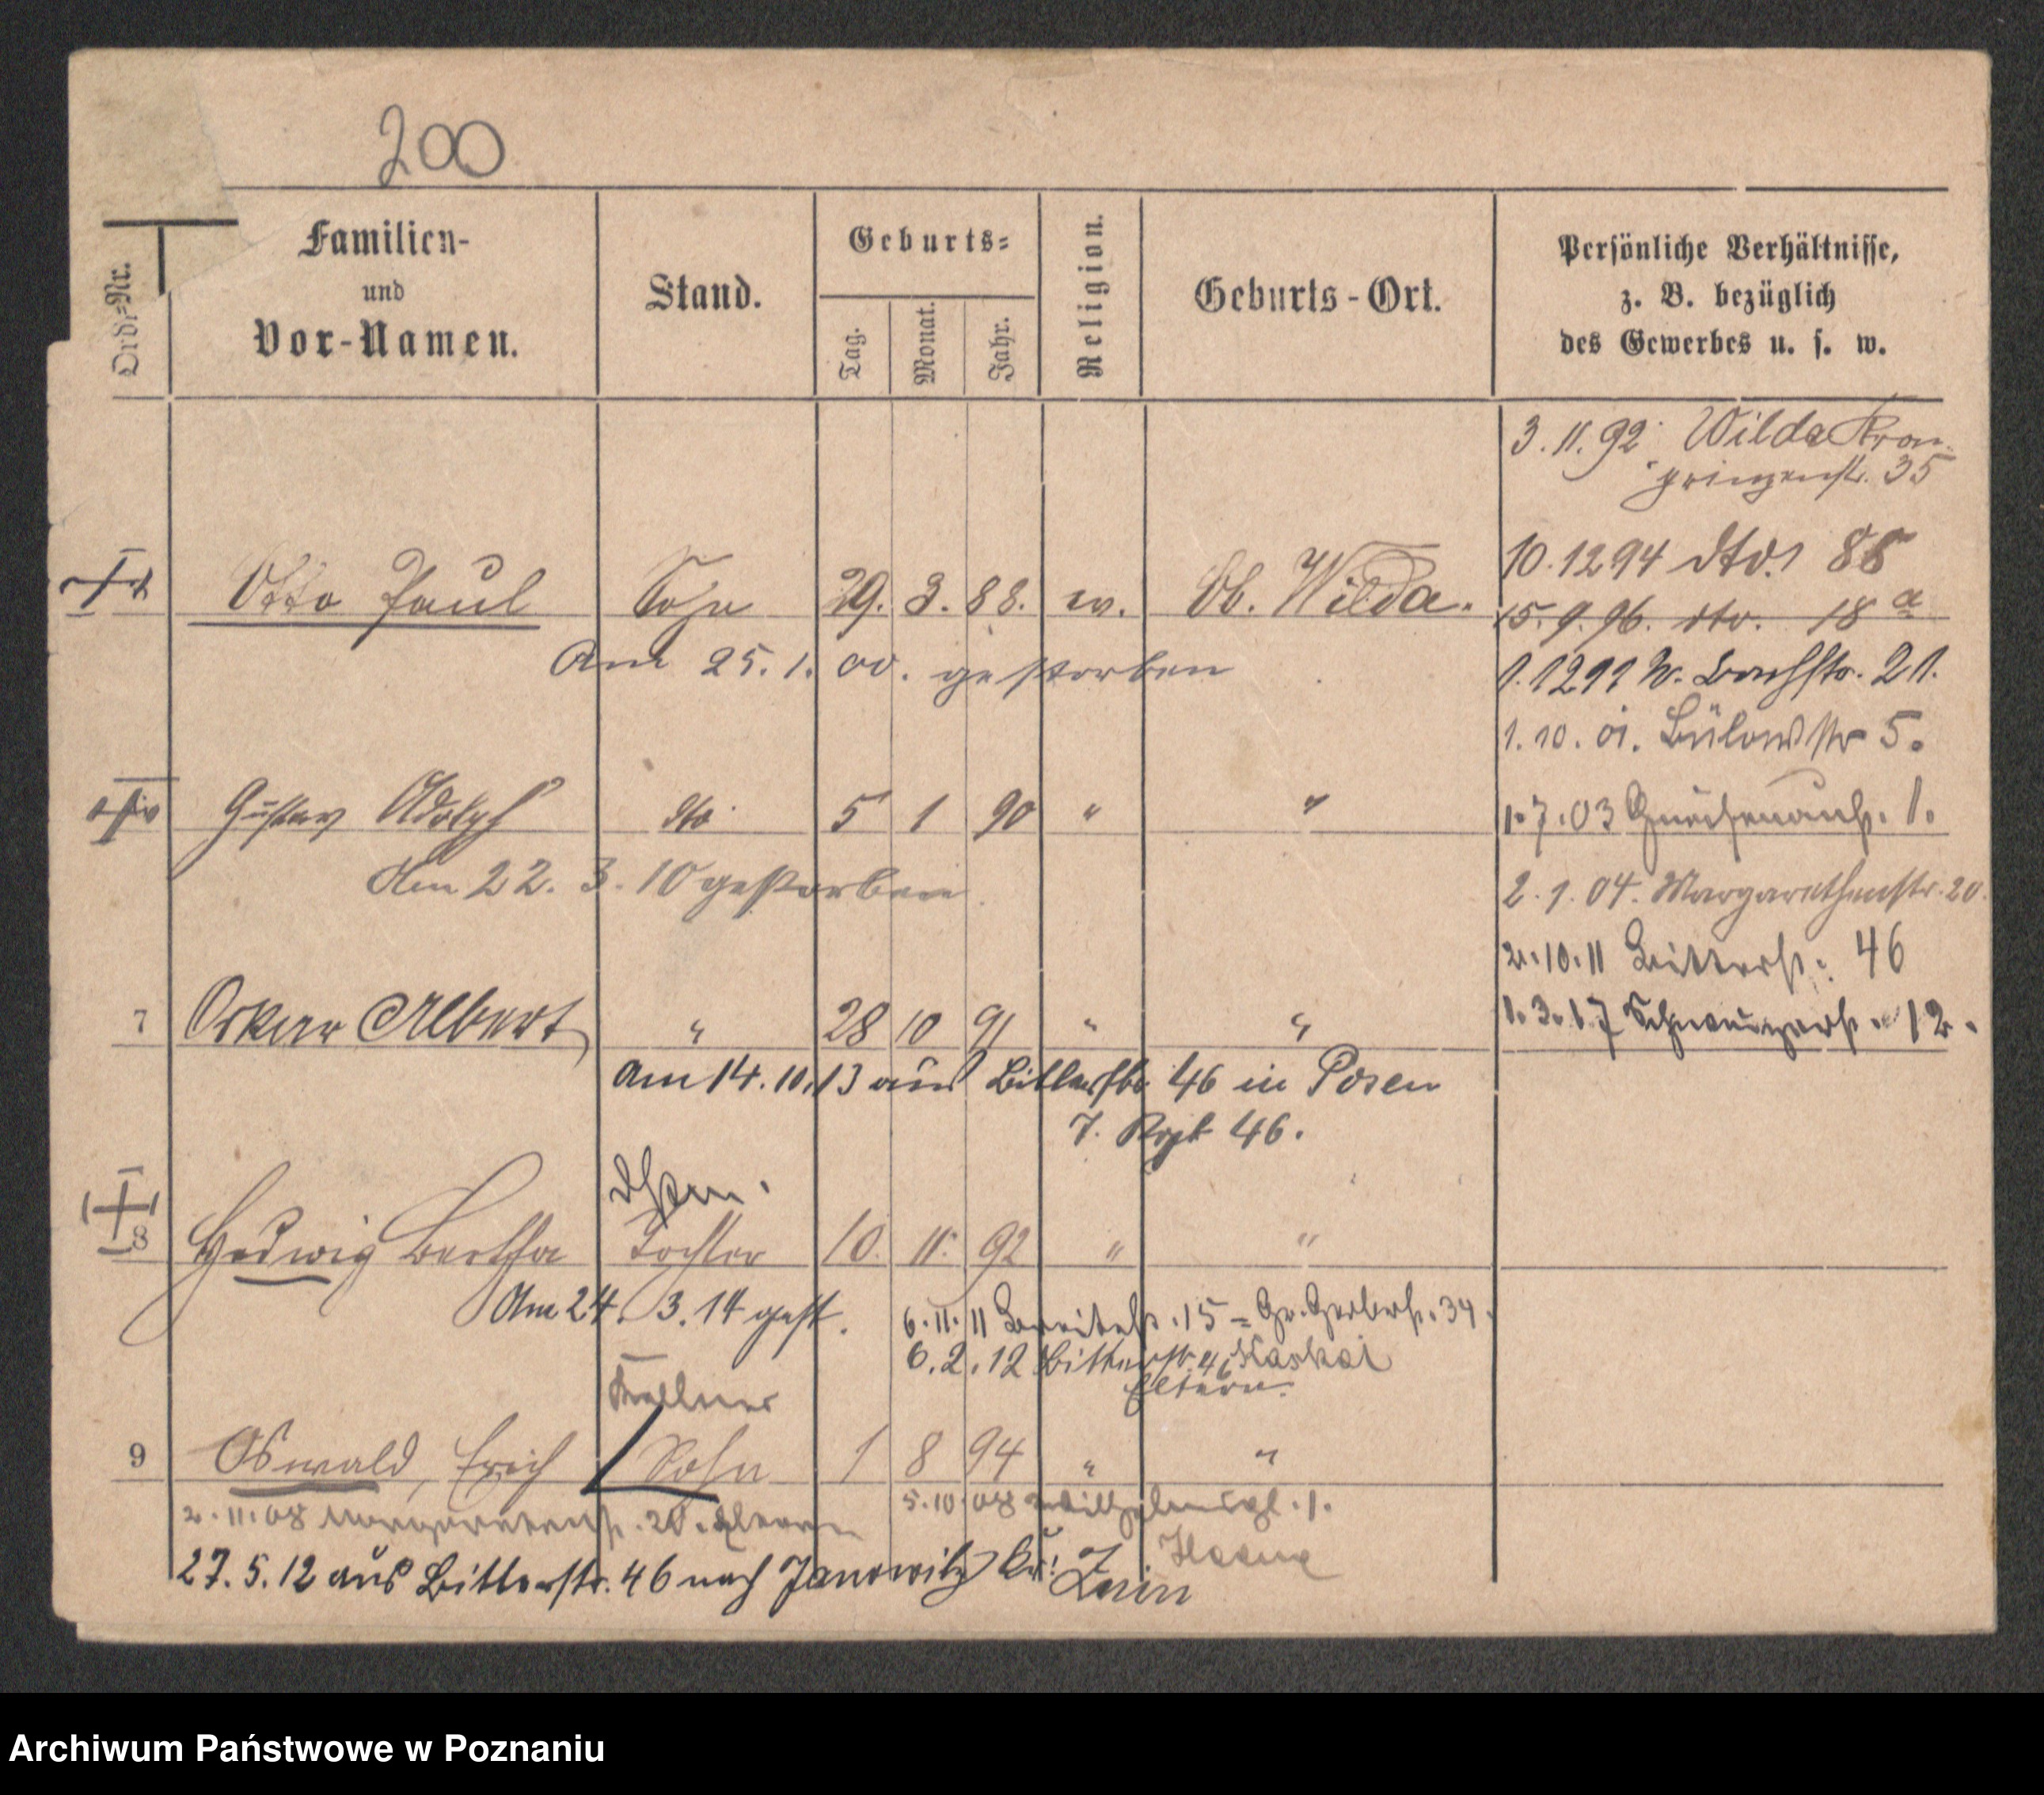 200
Ord.-Nr.
Familien-
und
Vor-Namen.
Stand.
Geburts-
Tag.
Monat.
Jahr.
Religion.
Geburts-Ort.
Persönliche Verhältnisse,
z. B. bezüglich
des Gewerbes u. s. w.
3.11.92 Wilda Kron-
prinzenstr. 35
10.12 94 dto. 88
Otto Paul Sohn 29. 3. 88. ev. Ob. Wilda.
15.9.96. dto. 18 a
Am 25.1.00. gestorben
1.12 99 W. Bachstr. 21.
1.10.01. Bülowstr 5.
Gustav Adolph dto 5 1 90 " "
1.7.03 Gneisenaustr. 1.
Am 22.3.10 gestorben
2.1.04. Margarethenstr. 20.
2.10.11 Bitterstr. 46
7 Oskar Albert " 28 10 91 " "
1.3.17 12.
am 14.10.13 aus Bitterstr 46 in Posen
7. Rgt 46.
8 Hedwig Bertha Tochter 10. 11. 92 " "
Am 24.3.14 gest.
6.11.11 Breitestr. 15 = Gr. Gerberstr. 34.
6.2.12 Bitterstr. 46
Eltern.
Kellner
9 Oswald, Erich Sohn 1 8 94 " "
5.10.08 Wilhelmspl. 1.
2.11.08 Margaretenstr. 20. Eltern
27.5.12 aus Bitterstr. 46 nach Janowitz Kr. Znin